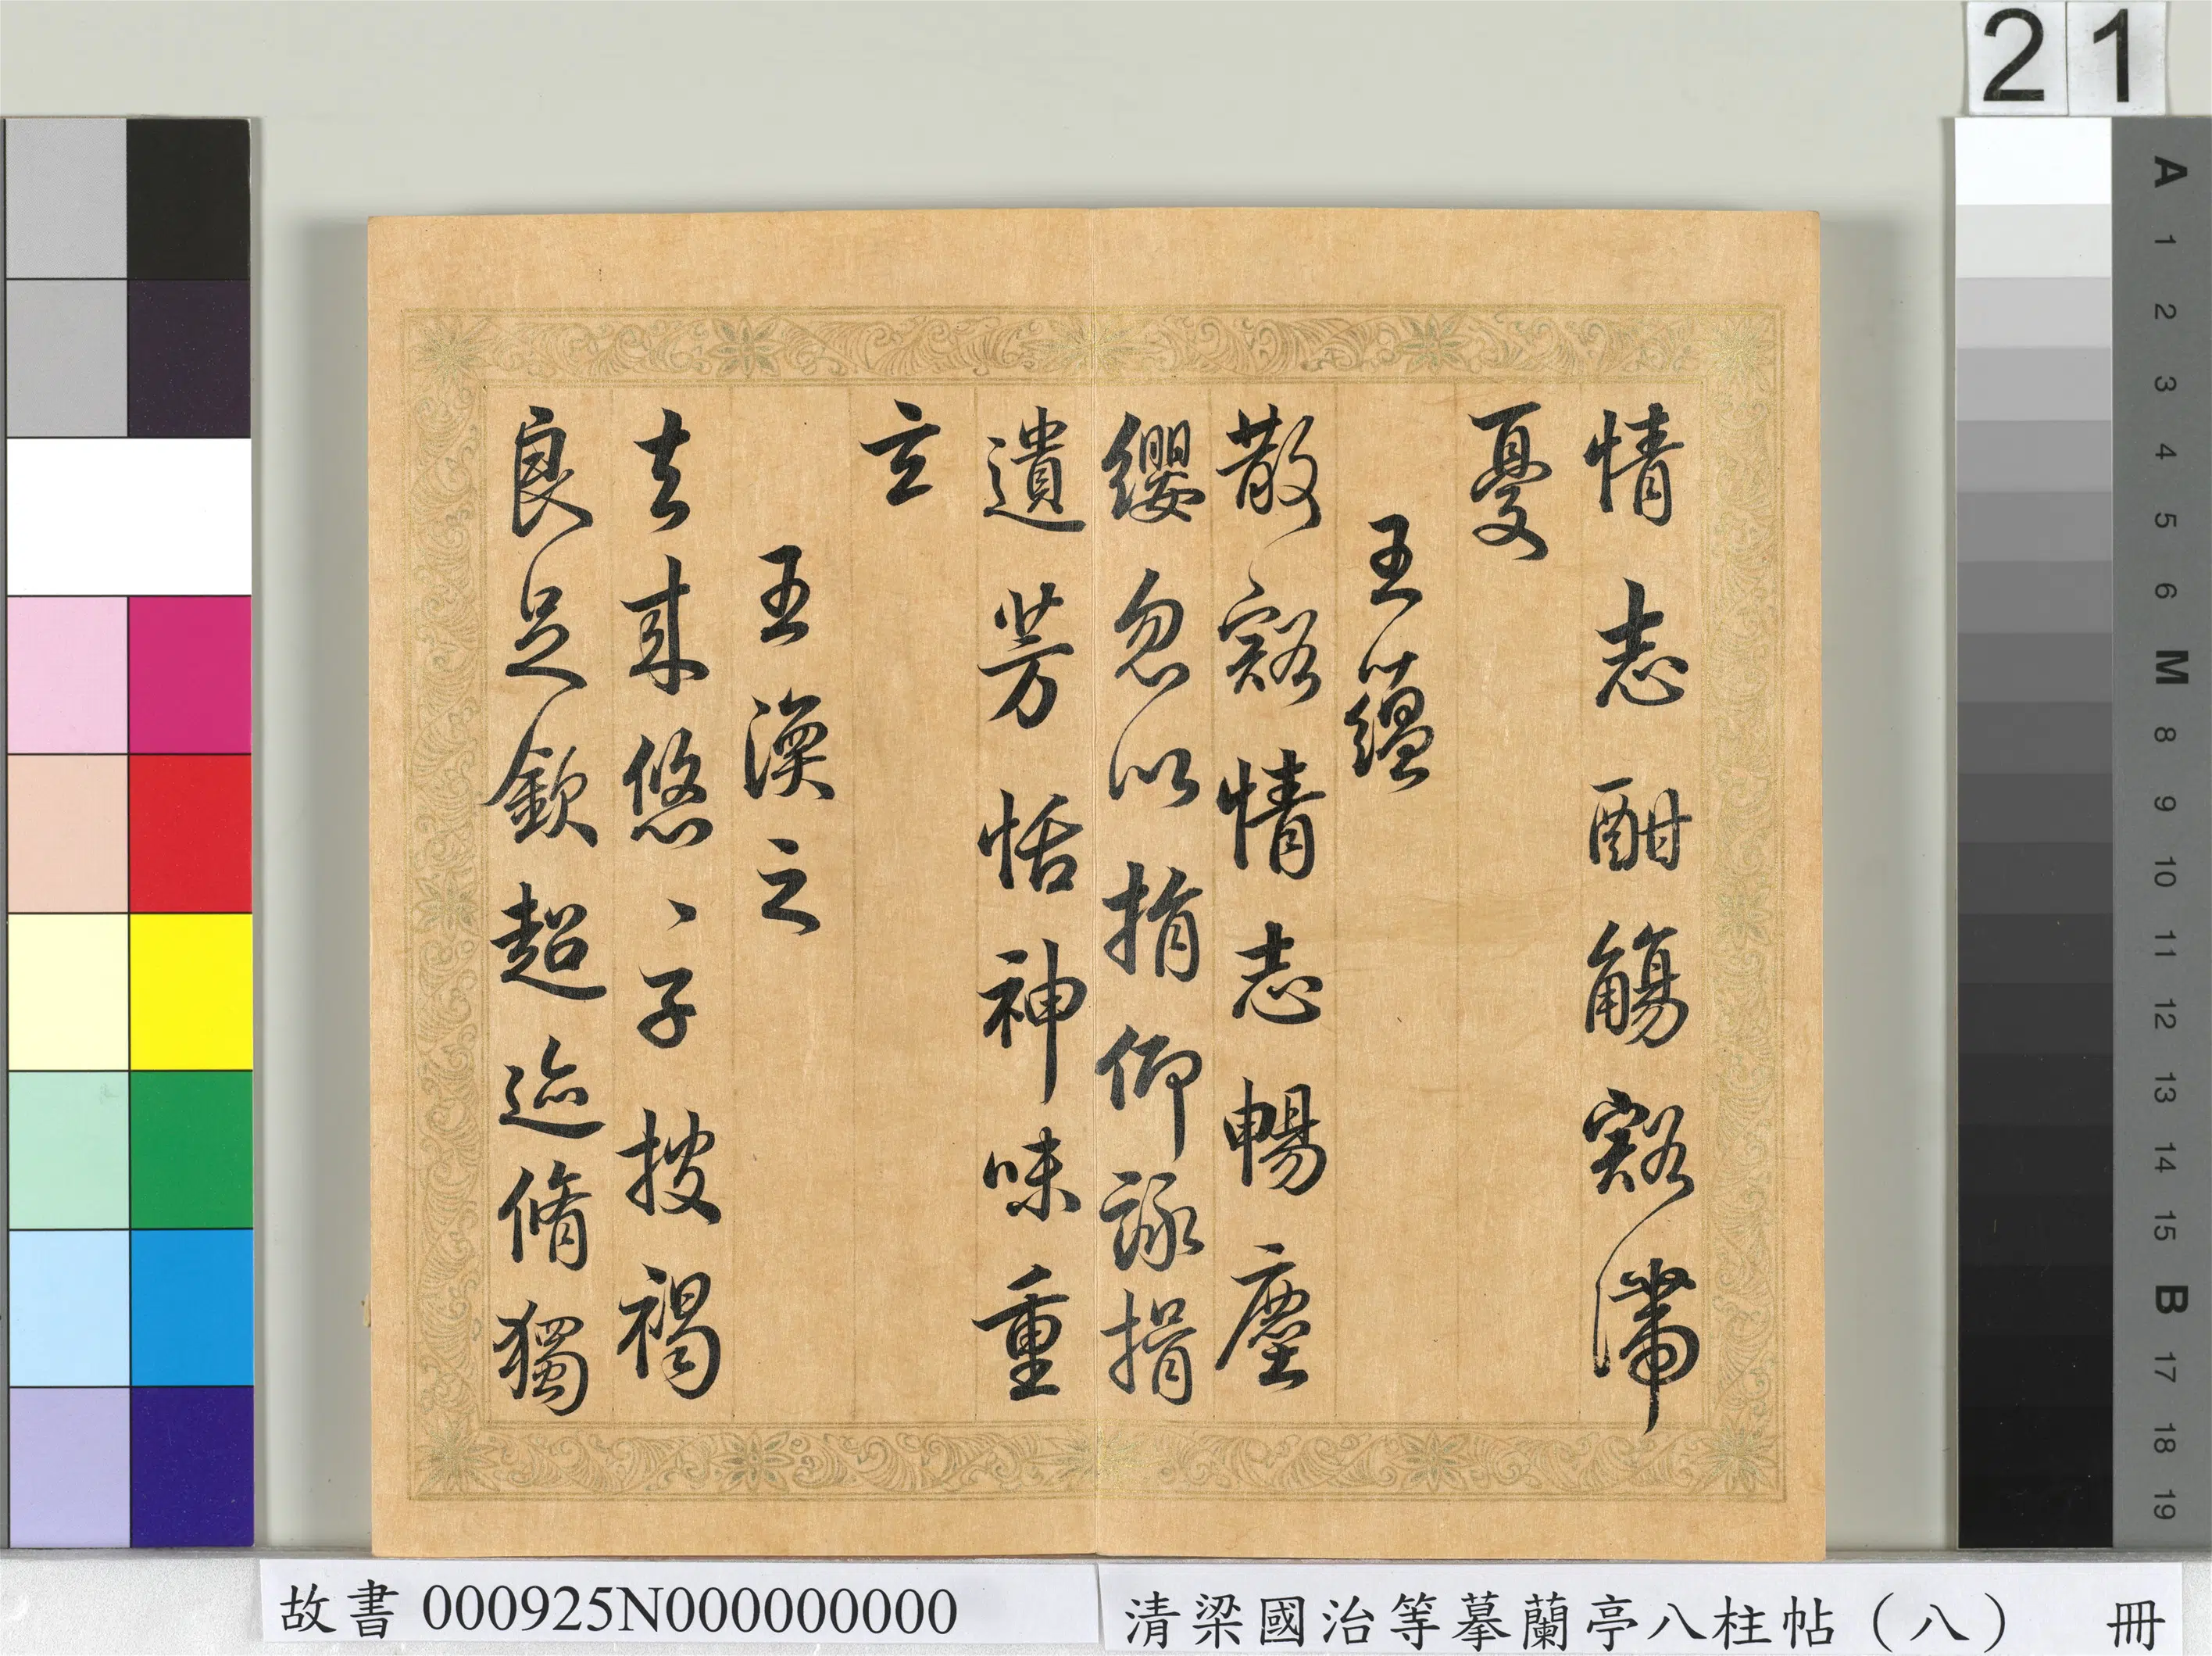 情志酣觴豁滯
憂
王蘊
散豁情志暢塵
纓忽以捐仰詠揖
遺芳恬神味重
玄
王渙之
去來悠〻子披褐
良足欽超迹脩獨
21
A 1 2 3 4 5 6 M 8 9 10 11 12 13 14 15 B 17 18 19
故書 000925N000000000
清梁國治等摹蘭亭八柱帖（八） 冊